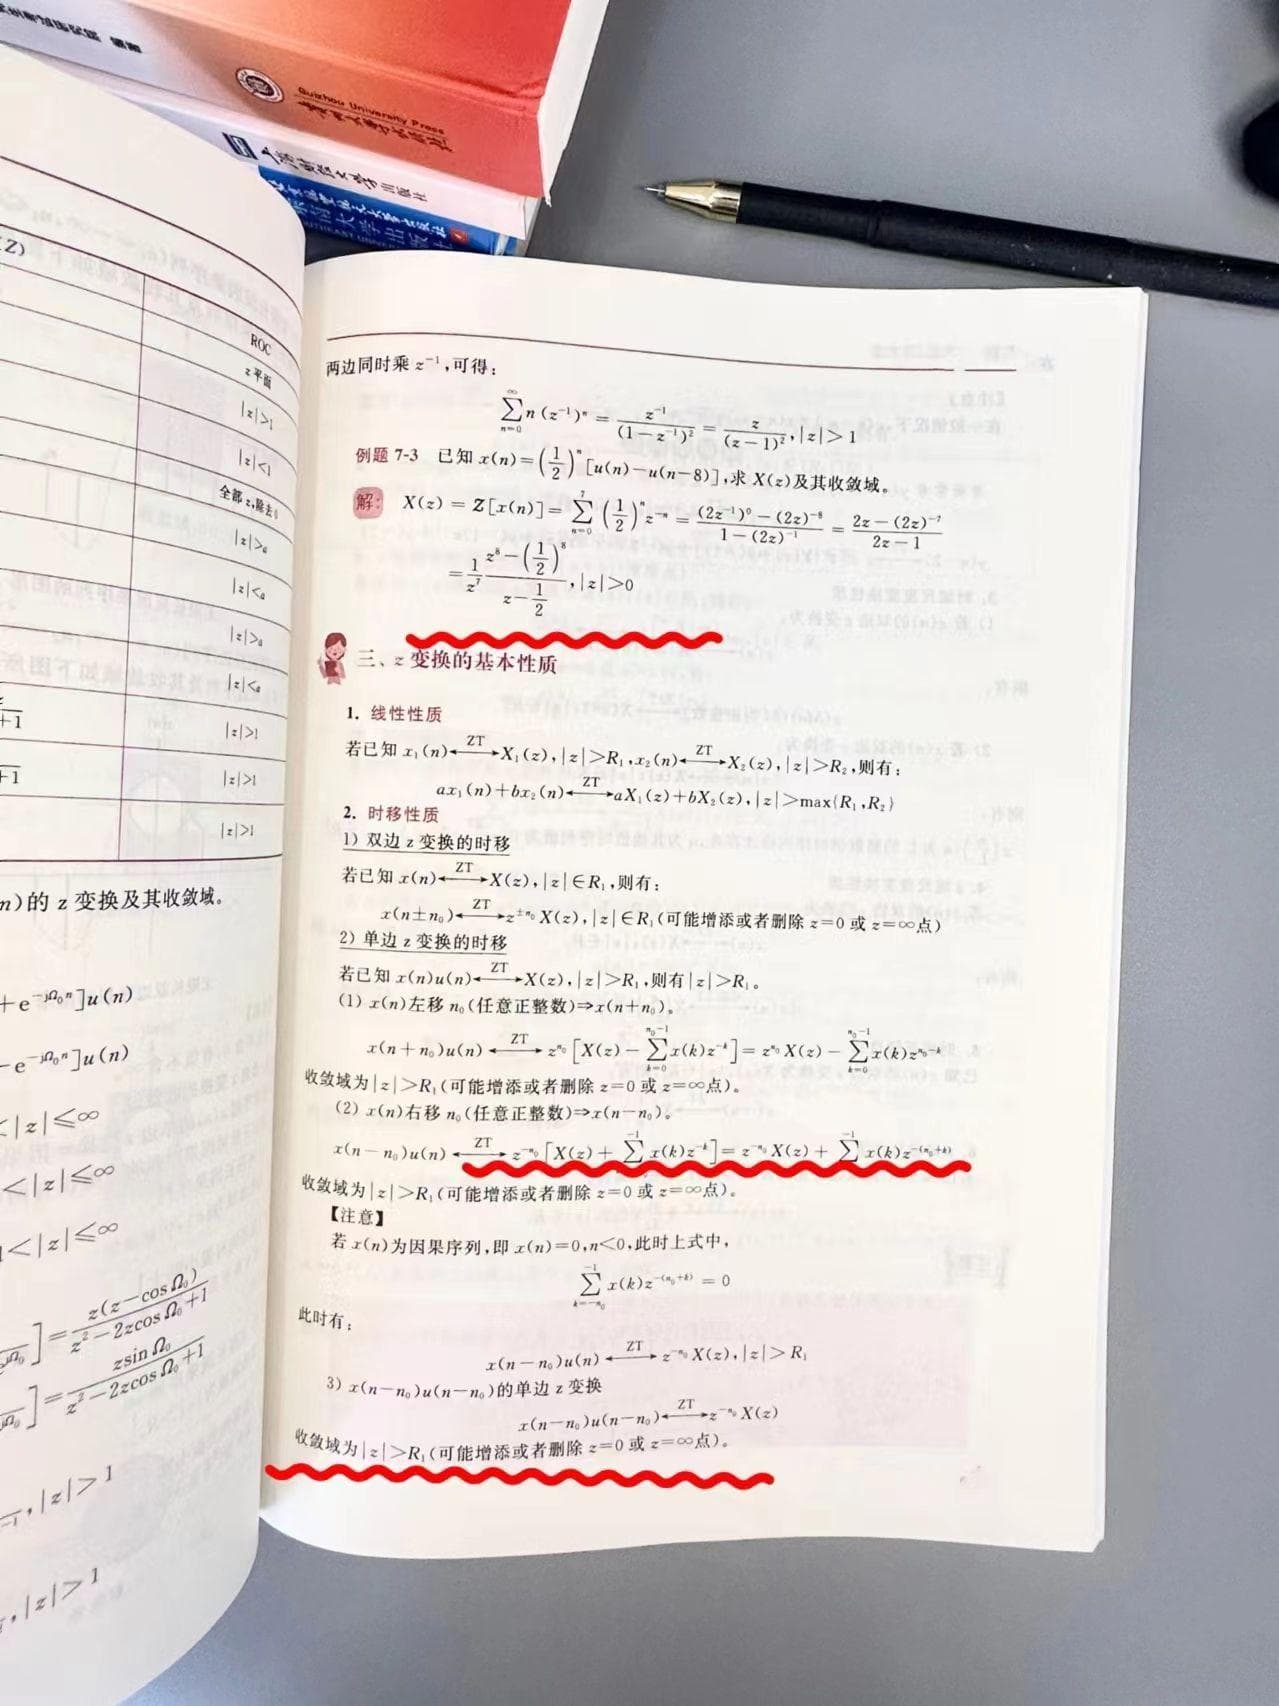 编著
Guizhou University Press
贵州大学出版社
上海财经大学出版社
(Z)
ROC
z平面
|z|>1
|z|<1
全部z,除去0
|z|>a
|z|<a
|z|>a
|z|<a
+1
|z|>1
+1
|z|>1
|z|>1
n)的 z 变换及其收敛域。
+e^{-jΩ₀n}]u(n)
-e^{-jΩ₀n}]u(n)
<|z|≤∞
<|z|≤∞
<|z|≤∞
]=z(z-cosΩ₀)/(z²-2zcosΩ₀+1)
]=zsinΩ₀/(z²-2zcosΩ₀+1)
,|z|>1
,|z|>1
两边同时乘 z⁻¹,可得:
∑_{n=0}^{∞} n(z⁻¹)ⁿ = z⁻¹/(1-z⁻¹)² = z/(z-1)², |z|>1
例题 7-3 已知 x(n)=(1/2)ⁿ[u(n)-u(n-8)],求 X(z)及其收敛域。
解: X(z)=Z[x(n)]=∑_{n=0}^{7}(1/2)ⁿz⁻ⁿ=((2z⁻¹)⁰-(2z)⁻⁸)/(1-(2z)⁻¹)=(2z-(2z)⁻⁷)/(2z-1)
=1/z⁷ (z⁸-(1/2)⁸)/(z-1/2), |z|>0
三、z 变换的基本性质
1. 线性性质
若已知 x₁(n)⟷ZT X₁(z),|z|>R₁,x₂(n)⟷ZT X₂(z),|z|>R₂,则有:
ax₁(n)+bx₂(n)⟷ZT aX₁(z)+bX₂(z),|z|>max{R₁,R₂}
2. 时移性质
1) 双边 z 变换的时移
若已知 x(n)⟷ZT X(z),|z|∈R₁,则有:
x(n±n₀)⟷ZT z^{±n₀}X(z),|z|∈R₁(可能增添或者删除 z=0 或 z=∞点)
2) 单边 z 变换的时移
若已知 x(n)u(n)⟷ZT X(z),|z|>R₁,则有|z|>R₁。
(1) x(n)左移 n₀(任意正整数)⇒x(n+n₀)。
x(n+n₀)u(n)⟷ZT z^{n₀}[X(z)-∑_{k=0}^{n₀-1}x(k)z^{-k}]=z^{n₀}X(z)-∑_{k=0}^{n₀-1}x(k)z^{n₀-k}
收敛域为|z|>R₁(可能增添或者删除 z=0 或 z=∞点)。
(2) x(n)右移 n₀(任意正整数)⇒x(n-n₀)。
x(n-n₀)u(n)⟷ZT z^{-n₀}[X(z)+∑^{-1}x(k)z^{-k}]=z^{-n₀}X(z)+∑^{-1}x(k)z^{-(n₀+k)}
收敛域为|z|>R₁(可能增添或者删除 z=0 或 z=∞点)。
【注意】
若 x(n)为因果序列,即 x(n)=0,n<0,此时上式中,
∑_{k=-n₀}^{-1}x(k)z^{-(n₀+k)}=0
此时有:
x(n-n₀)u(n)⟷ZT z^{-n₀}X(z),|z|>R₁
3) x(n-n₀)u(n-n₀)的单边 z 变换
x(n-n₀)u(n-n₀)⟷ZT z^{-n₀}X(z)
收敛域为|z|>R₁(可能增添或者删除 z=0 或 z=∞点)。